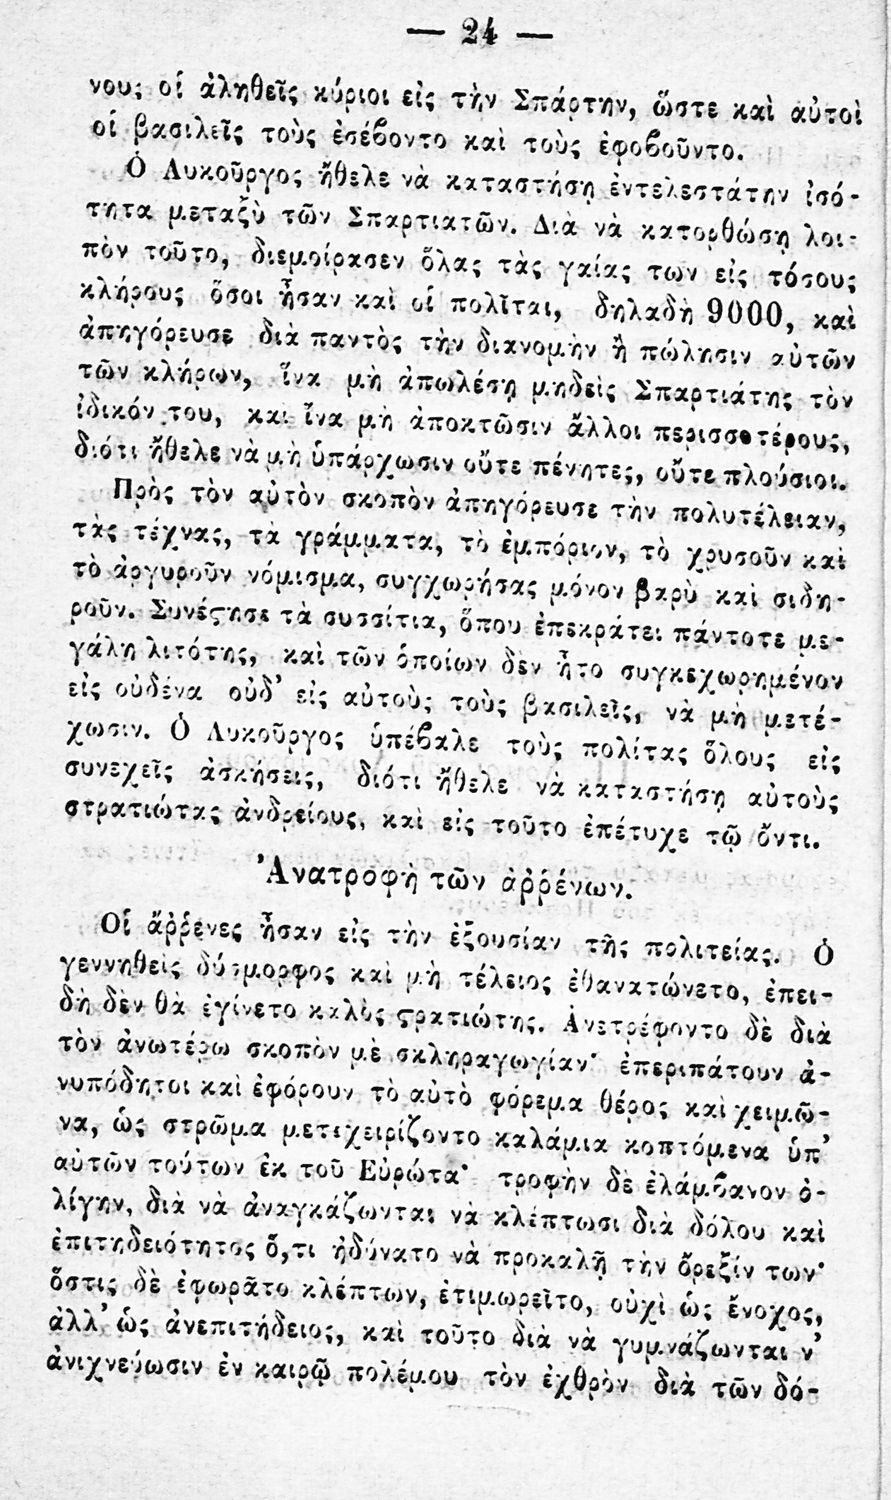 — 24 —
νους οἱ ἀληθεῖς κύριοι εἰς τὴν Σπάρτην, ὥστε καὶ αὐτοὶ
οἱ βασιλεῖς τοὺς ἐσέβοντο καὶ τοὺς ἐφοβοῦντο.
Ὁ Λυκοῦργος ἤθελε νὰ καταστήσῃ ἐντελεστάτην ἰσό-
τητα μεταξὺ τῶν Σπαρτιατῶν. Διὰ νὰ κατορθώσῃ λοι-
πὸν τοῦτο, διεμοίρασεν ὅλας τὰς γαίας των εἰς τόσους
κλήρους ὅσοι ἦσαν καὶ οἱ πολῖται, δηλαδὴ 9000, καὶ
ἀπηγόρευσε διὰ παντὸς τὴν διανομὴν ἢ πώλησιν αὐτῶν
τῶν κλήρων, ἵνα μὴ ἀπωλέσῃ μηδεὶς Σπαρτιάτης τὸν
ἰδικόν του, καὶ ἵνα μὴ ἀποκτῶσιν ἄλλοι περισσοτέρους,
διότι ἤθελε νὰ μὴ ὑπάρχωσιν οὔτε πένητες, οὔτε πλούσιοι.
Πρὸς τὸν αὐτὸν σκοπὸν ἀπηγόρευσε τὴν πολυτέλειαν,
τὰς τέχνας, τὰ γράμματα, τὸ ἐμπόριον, τὸ χρυσοῦν καὶ
τὸ ἀργυροῦν νόμισμα, συγχωρήσας μόνον βαρὺ καὶ σιδη-
ροῦν. Συνέςησε τὰ συσσίτια, ὅπου ἐπεκράτει πάντοτε με-
γάλη λιτότης, καὶ τῶν ὁποίων δὲν ἦτο συγκεχωρημένον
εἰς οὐδένα οὐδ' εἰς αὐτοὺς τοὺς βασιλεῖς, νὰ μὴ μετέ-
χωσιν. Ὁ Λυκοῦργος ὑπέβαλε τοὺς πολίτας ὅλους εἰς
συνεχεῖς ἀσκήσεις, διότι ἤθελε νὰ καταστήσῃ αὐτοὺς
στρατιώτας ἀνδρείους, καὶ εἰς τοῦτο ἐπέτυχε τῷ ὄντι.
Ἀνατροφὴ τῶν ἀῤῥένων.
Οἱ ἄῤῥενες ἦσαν εἰς τὴν ἐξουσίαν τῆς πολιτείας. Ὁ
γεννηθεὶς δύσμορφος καὶ μὴ τέλειος ἐθανατώνετο, ἐπει-
δὴ δὲν θὰ ἐγίνετο καλὸς ςρατιώτης. Ἀνετρέφοντο δὲ διὰ
τὸν ἀνωτέρω σκοπὸν μὲ σκληραγωγίαν· ἐπεριπάτουν ἀ-
νυπόδητοι καὶ ἐφόρουν τὸ αὐτὸ φόρεμα θέρος καὶ χειμῶ-
να, ὡς στρῶμα μετεχειρίζοντο καλάμια κοπτόμενα ὑπ'
αὐτῶν τούτων ἐκ τοῦ Εὐρώτα· τροφὴν δὲ ἐλάμβανον ὀ-
λίγην, διὰ νὰ ἀναγκάζωνται νὰ κλέπτωσι διὰ δόλου καὶ
ἐπιτηδειότητος ὅ,τι ἠδύνατο νὰ προκαλῇ τὴν ὄρεξίν των·
ὅστις δὲ ἐφωρᾶτο κλέπτων, ἐτιμωρεῖτο, οὐχὶ ὡς ἔνοχος,
ἀλλ' ὡς ἀνεπιτήδειος, καὶ τοῦτο διὰ νὰ γυμνάζωνται ν'
ἀνιχνεύωσιν ἐν καιρῷ πολέμου τὸν ἐχθρὸν διὰ τῶν δό-